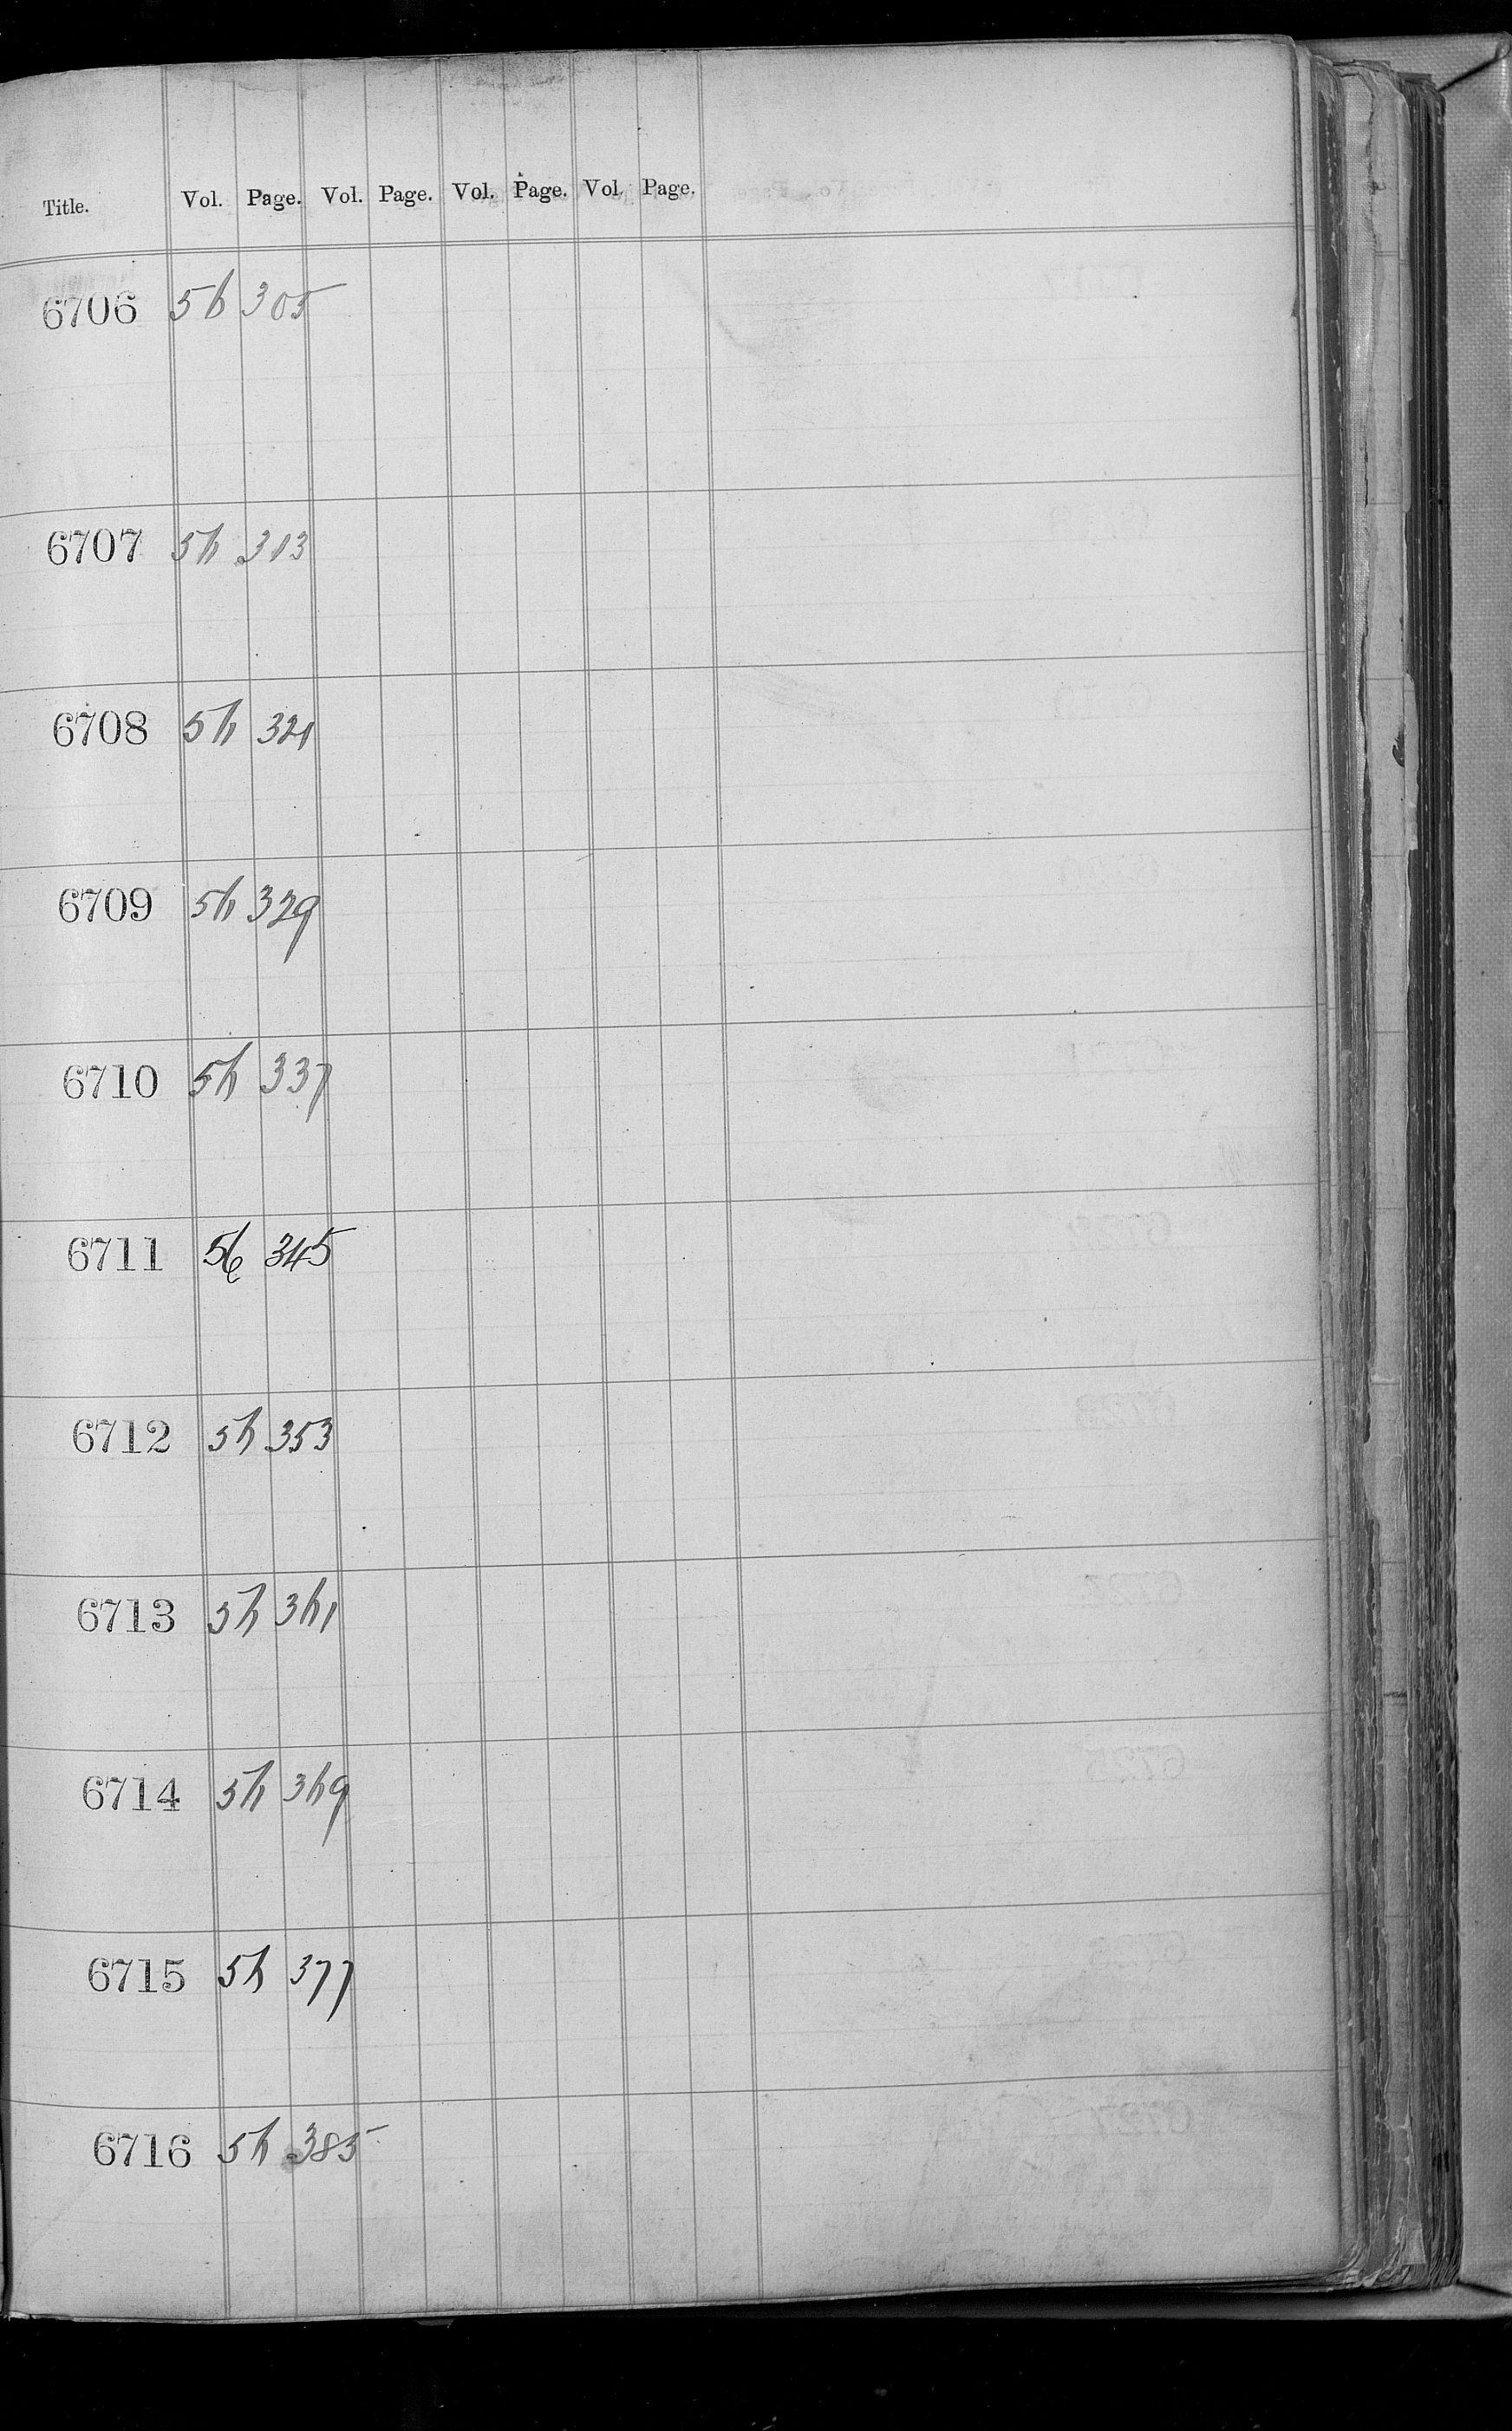 Title. Vol. Page. Vol. Page. Vol. Page. Vol. Page.
6706 56 305
6707 56 313
6708 56 321
6709 56 329
6710 56 337
6711 56 345
6712 56 353
6713 56 361
6714 56 369
6715 56 377
6716 56 385